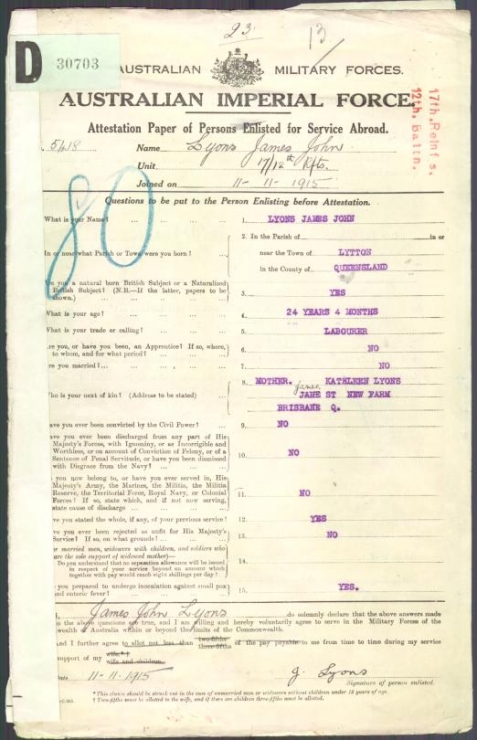 23.
13
D
30703
AUSTRALIAN MILITARY FORCES.
AUSTRALIAN IMPERIAL FORCE.
17th. Reinf's.
12th. Battn.
Attestation Paper of Persons Enlisted for Service Abroad.
5418
Name Lyons James John
Unit 17/12th Rfts.
Joined on 11-11-1915
Questions to be put to the Person Enlisting before Attestation.
80
What is your Name?
1. LYONS JAMES JOHN
In or near what Parish or Town were you born?
2. In the Parish of in or
near the Town of LYTTON
in the County of QUEENSLAND
you a natural born British Subject or a Naturalized
British Subject? (N.B.—If the latter, papers to be
shown.)
3. YES
What is your age?
4. 24 YEARS 4 MONTHS
What is your trade or calling?
5. LABOURER
you, or have you been, an Apprentice? If so, where,
to whom, and for what period?
6. NO
you married?
7. NO
Who is your next of kin? (Address to be stated)
8. MOTHER. KATHLEEN LYONS
James
JANE ST NEW FARM
BRISBANE Q.
Have you ever been convicted by the Civil Power?
9. NO
you ever been discharged from any part of His
Majesty's Forces, with Ignominy, or as Incorrigible and
Worthless, or on account of Conviction of Felony, or of a
Sentence of Penal Servitude, or have you been dismissed
with Disgrace from the Navy?
10. NO
you now belong to, or have you ever served in, His
Majesty's Army, the Marines, the Militia, the Militia
Reserve, the Territorial Force, Royal Navy, or Colonial
Forces? If so, state which, and if not now serving,
state cause of discharge
11. NO
you stated the whole, if any, of your previous service?
12. YES
you ever been rejected as unfit for His Majesty's
Service? If so, on what grounds?
13. NO
married men, widowers with children, and soldiers who
are the sole support of widowed mother—
Do you understand that no separation allowance will be issued
in respect of your service beyond an amount which
together with pay would reach eight shillings per day?
14.
you prepared to undergo inoculation against small pox
and enteric fever?
15. YES.
James John Lyons do solemnly declare that the above answers made
the above questions are true, and I am willing and hereby voluntarily agree to serve in the Military Forces of the
Commonwealth of Australia within or beyond the limits of the Commonwealth.
And I further agree to allot not less than two-fifths
three-fifths of the pay payable to me from time to time during my service
support of my wife
wife and children.
Date 11-11-1915
J. Lyons
Signature of person enlisted.
* This clause should be struck out in the case of unmarried men or widowers without children under 18 years of age.
† Two-fifths must be allotted to the wife, and if there are children three-fifths must be allotted.